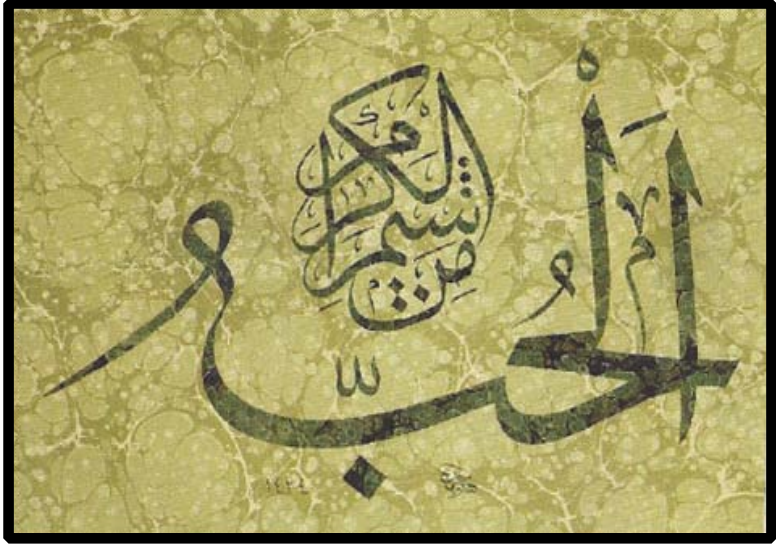 الْحُبُّ
مِن شيم الكرام
١٤٢٤